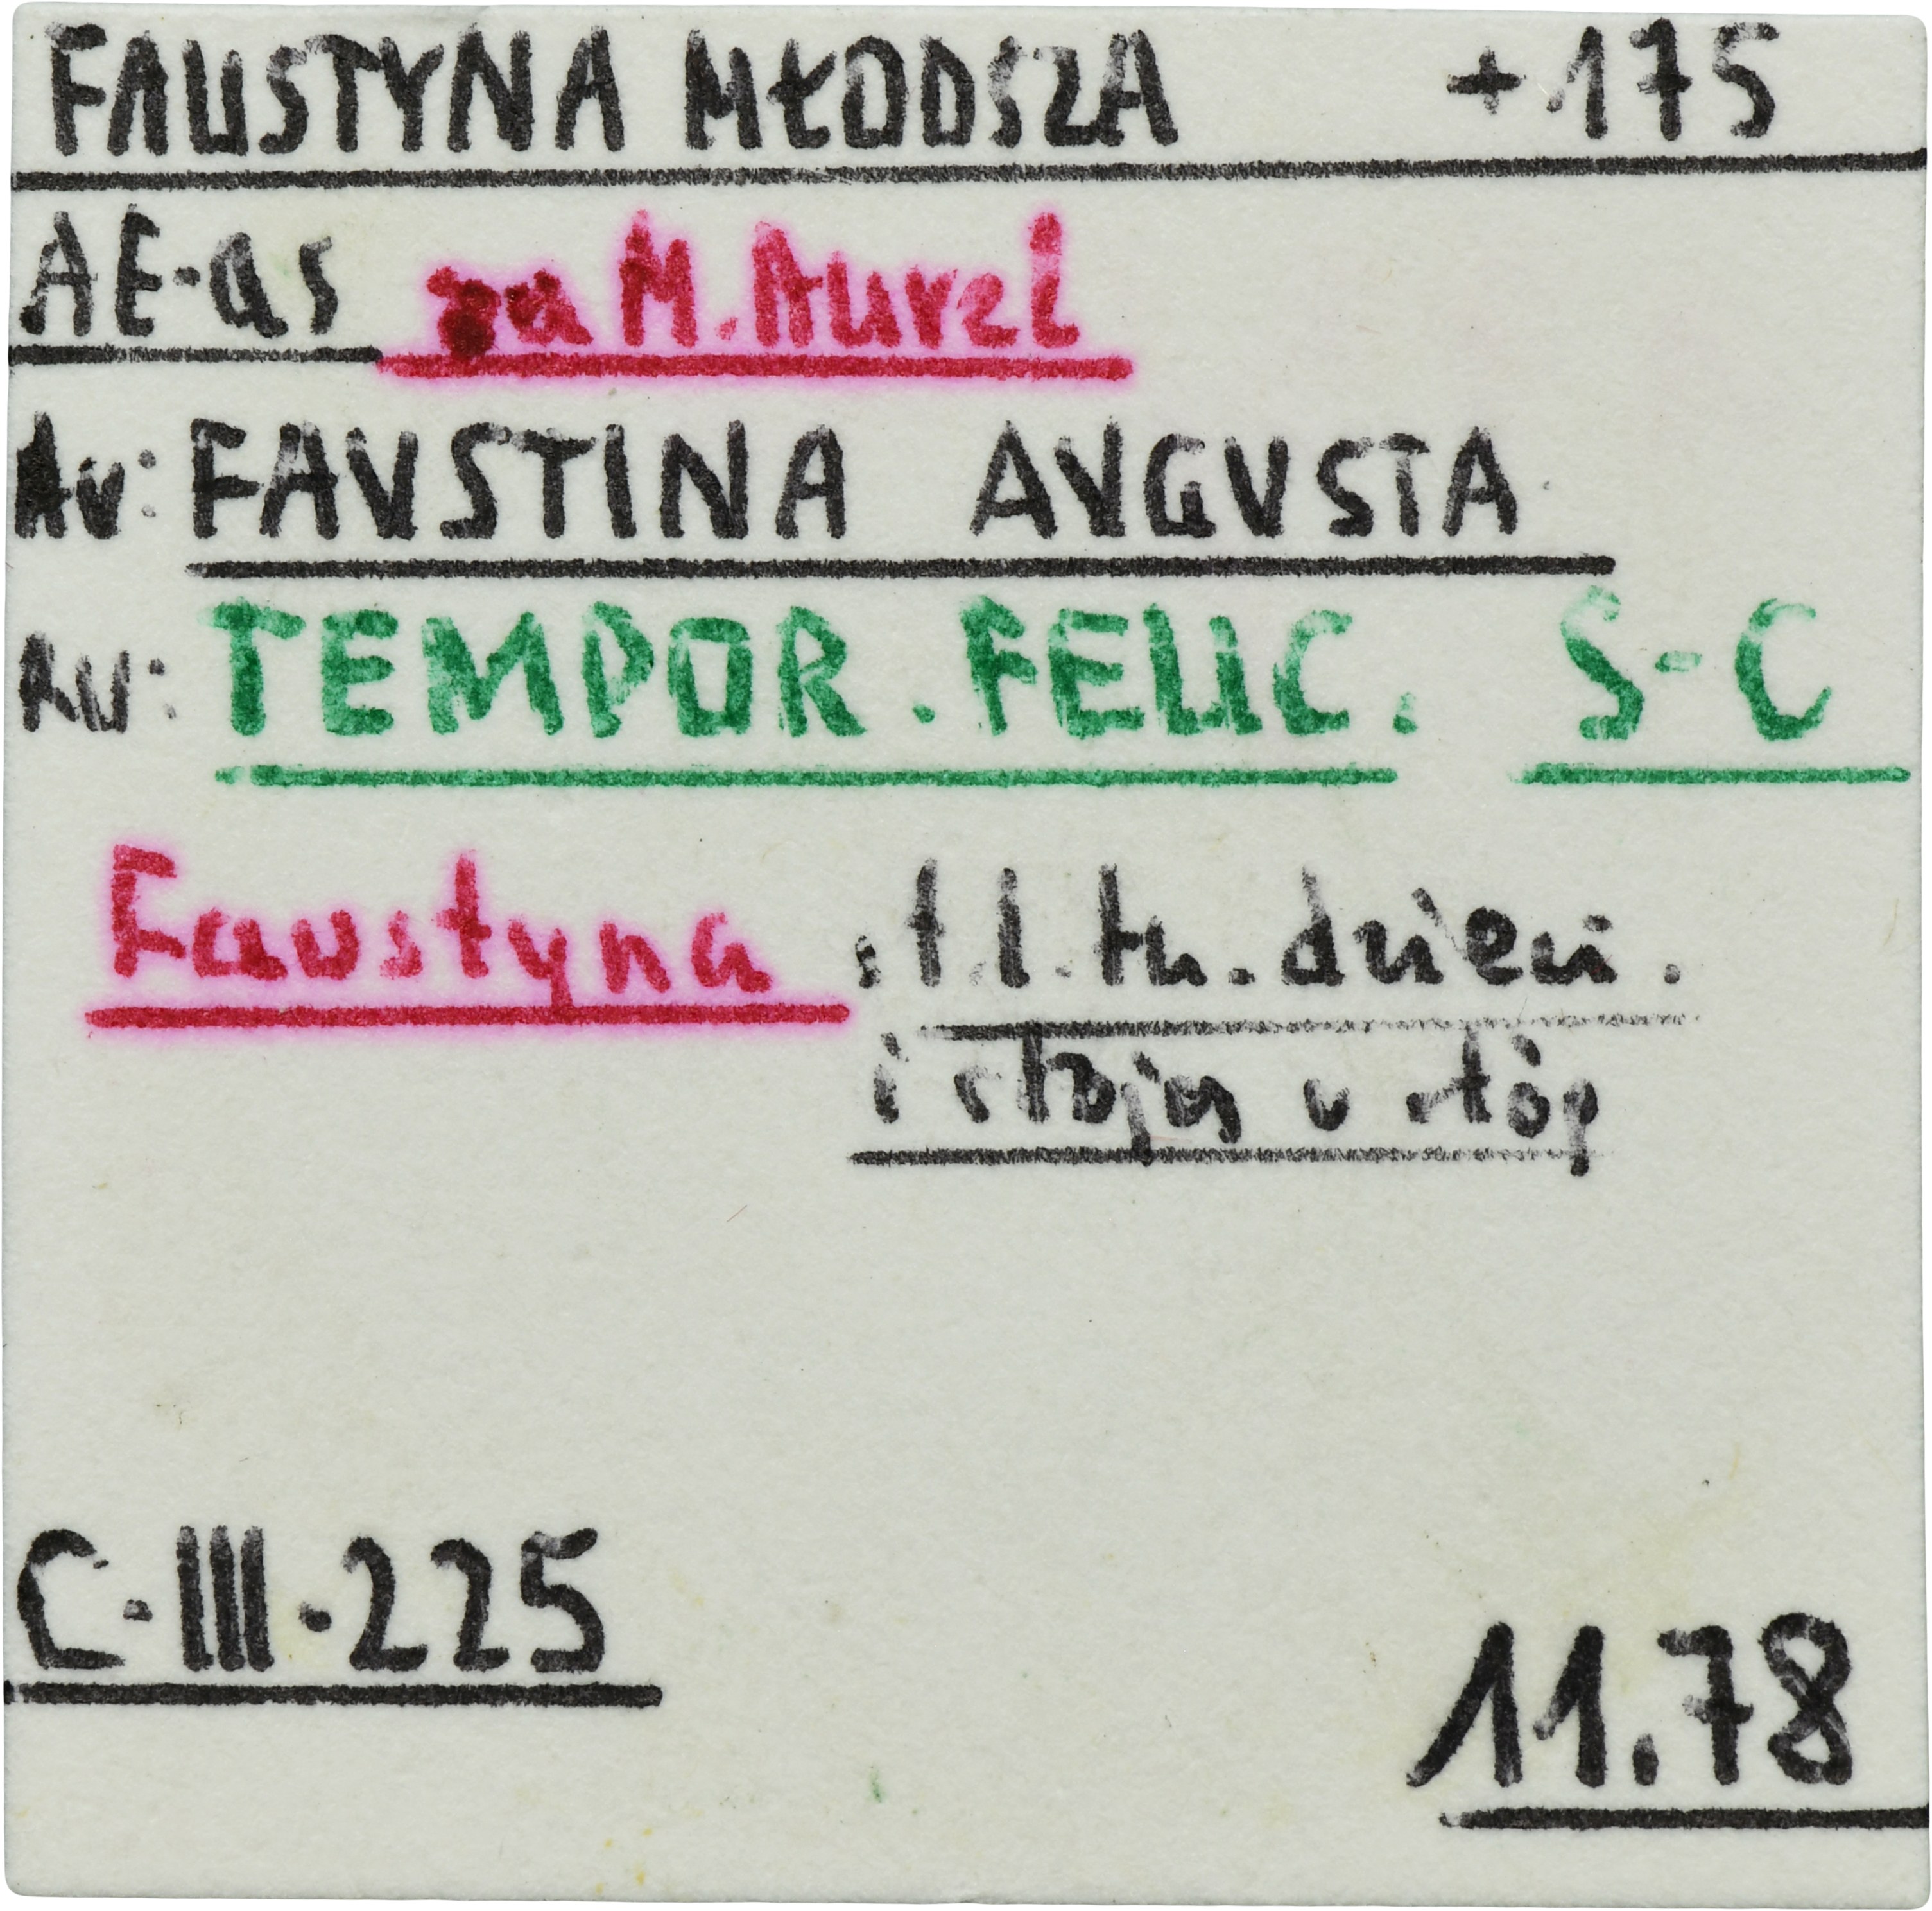 FAUSTYNA MŁODSZA +175
AE-as za M. Aurel
Av: FAVSTINA AVGVSTA
Rv: TEMPOR. FELIC. S-C
Faustyna st. l. tu. dzieci.
i stojąs u stóp
C-III-225
11.78